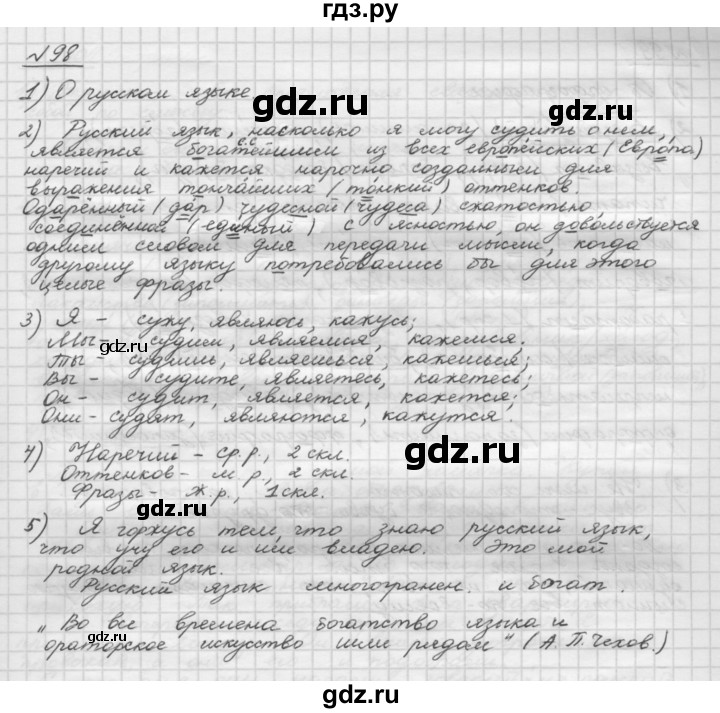 гдз.ру
№98
1) О русском языке.
gdz.ru
2) Русский язык, насколько я могу судить о нем,
является богатейшим из всех европейских (Европа)
наречий и кажется нарочно созданным для
выражения тончайших (тонкий) оттенков.
Одарённый (дар) чудесной (чудеса) сжатостью,
соединённой (единый) с ясностью, он довольствуется
одним словом для передачи мысли, когда
другому языку потребовались бы для этого
целые фразы.
gdz.ru
3) Я - сужу, являюсь, кажусь;
Мы - судим, являемся, кажемся;
Ты - судишь, являешься, кажешься;
Вы - судите, являетесь, кажетесь;
Он - судит, является, кажется;
Они - судят, являются, кажутся.
gdz.ru
4) Наречий - ср.р., 2 скл.
Оттенков - м.р., 2 скл.
Фразы - ж.р., 1 скл.
gdz.ru
5) Я горжусь тем, что знаю русский язык,
что учу его и им владею. Это мой
родной язык.
gdz.ru
Русский язык многогранен и богат.
„Во все времена богатство языка и
ораторское искусство шли рядом“ (А.П.Чехов.)
gdz.ru
gdz.ru